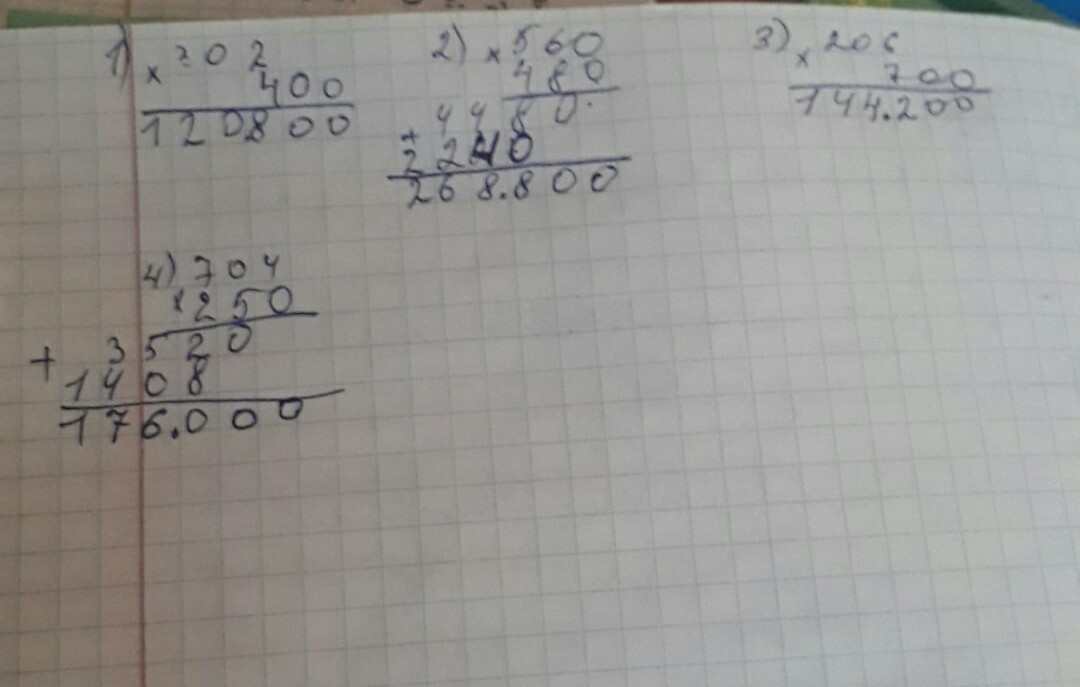 1) × 302
400
120800
2) × 560
480
4480
+ 2240
268.800
3) × 206
700
144.200
4) 704
× 250
3520
+ 1408
176.000